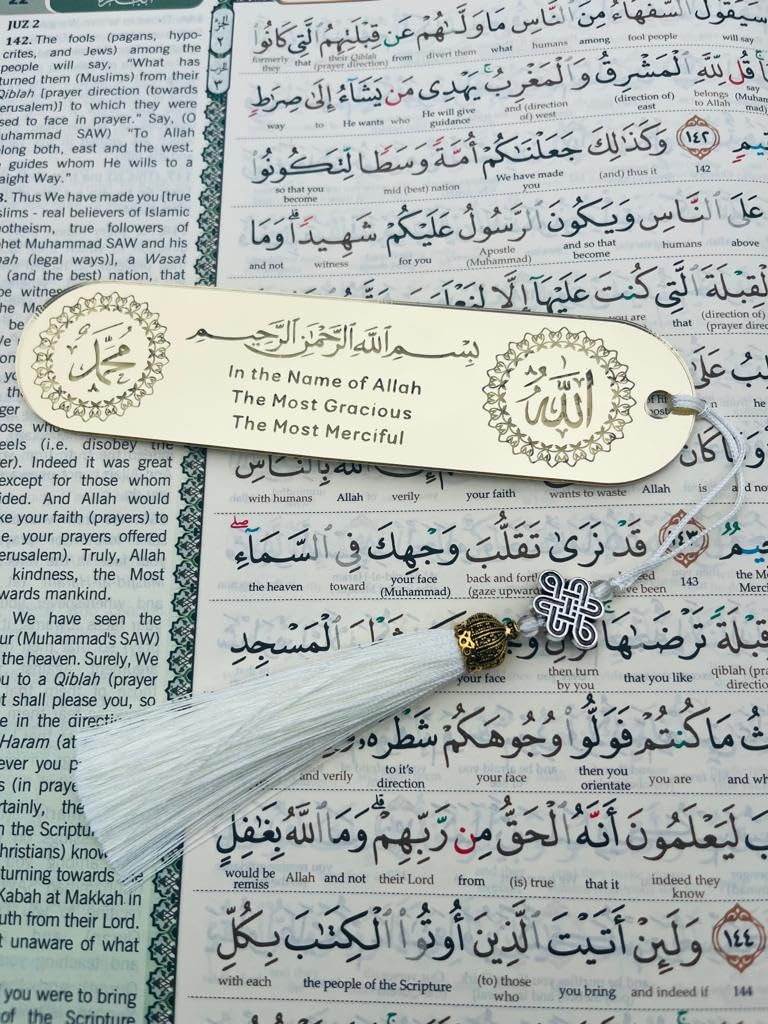 JUZ 2
142. The fools (pagans, hypo-
crites, and Jews) among the
people will say, "What has
turned them (Muslims) from their
Qiblah [prayer direction (towards
Jerusalem)] to which they were
used to face in prayer." Say, (O
Muhammad SAW) "To Allah
belong both, east and the west.
guides whom He wills to a
Straight Way."
Thus We have made you [true
slims - real believers of Islamic
otheism, true followers of
het Muhammad SAW and his
(legal ways)], a Wasat
(and the best) nation, that
be
eels (i.e. disobey the
er). Indeed it was great
except for those whom
ided. And Allah would
ke your faith (prayers) to
e. your prayers offered
erusalem). Truly, Allah
kindness, the Most
wards mankind.
We have seen the
ur (Muhammad's SAW)
the heaven. Surely, We
u to a Qiblah (prayer
t shall please you, so
e in the
Haram
ever you
s (in
the
the
know
turning towards
Kabah at Makkah in
uth from their Lord.
t unaware of what
you were to bring
of the Scripture
سَيَقُولُ السُّفَهَاءُ مِنَ النَّاسِ مَا وَلَّىٰهُمْ عَن قِبْلَتِهِمُ الَّتِي كَانُوا
formerly they that their Qiblah (prayer direction) from divert them what humans among fool people will say
قُل لِّلَّهِ الْمَشْرِقُ وَالْمَغْرِبُ يَهْدِي مَن يَشَاءُ إِلَىٰ صِرَاطٍ
way to He wants who He will give guidance and (direction of) west (direction of) east belongs to Allah say
١٤٢ وَكَذَٰلِكَ جَعَلْنَاكُمْ أُمَّةً وَسَطًا لِّتَكُونُوا
so that you become mid (best) nation We have made you (and) thus it 142
عَلَى النَّاسِ وَيَكُونَ الرَّسُولُ عَلَيْكُمْ شَهِيدًا وَمَا
and not witness for you Apostle (Muhammad) and so that become humans above
الْقِبْلَةَ الَّتِي كُنتَ عَلَيْهَا إِلَّا لِنَعْلَمَ
you are that (direction of)
محمد
بِسْمِ اللَّهِ الرَّحْمَٰنِ الرَّحِيمِ
In the Name of Allah
The Most Gracious
The Most Merciful
الله
with humans Allah verily your faith wants to waste Allah is
١٤٣ قَدْ نَرَىٰ تَقَلُّبَ وَجْهِكَ فِي السَّمَاءِ
the heaven toward your face (Muhammad) back and forth (gaze upward) 143
قِبْلَةً تَرْضَاهَا الْمَسْجِدِ
your face then turn by you that you like
مَا كُنتُمْ فَوَلُّوا وُجُوهَكُمْ شَطْرَهُ
and verily to it's direction your face then you orientate you are
لَيَعْلَمُونَ أَنَّهُ الْحَقُّ مِن رَّبِّهِمْ وَمَا اللَّهُ بِغَافِلٍ
would be remiss Allah and not their Lord from (is) true that it indeed they know
١٤٤ وَلَئِنْ أَتَيْتَ الَّذِينَ أُوتُوا الْكِتَابَ بِكُلِّ
with each the people of the Scripture (to) those who you bring and indeed if 144